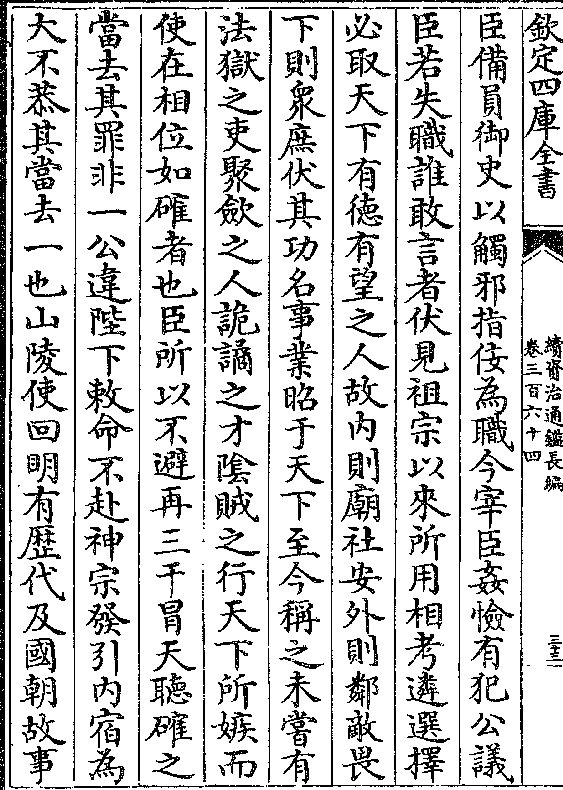 欽定四庫全書
續資治通鑑長編
卷三百六十四
三十三
臣備員御史以觸邪指佞為職今宰臣姦憸有犯公議
臣若失職誰敢言者伏見祖宗以來所用相考遴選擇
必取天下有徳有望之人故内則廟社安外則鄰敵畏
下則衆庶伏其功名事業昭于天下至今稱之未嘗有
法獄之吏聚歛之人詭譎之才隂賊之行天下所嫉而
使在相位如確者也臣所以不避再三干冒天聽確之
當去其罪非一公違陛下敕命不赴神宗發引内宿為
大不恭其當去一也山陵使回明有歴代及國朝故事